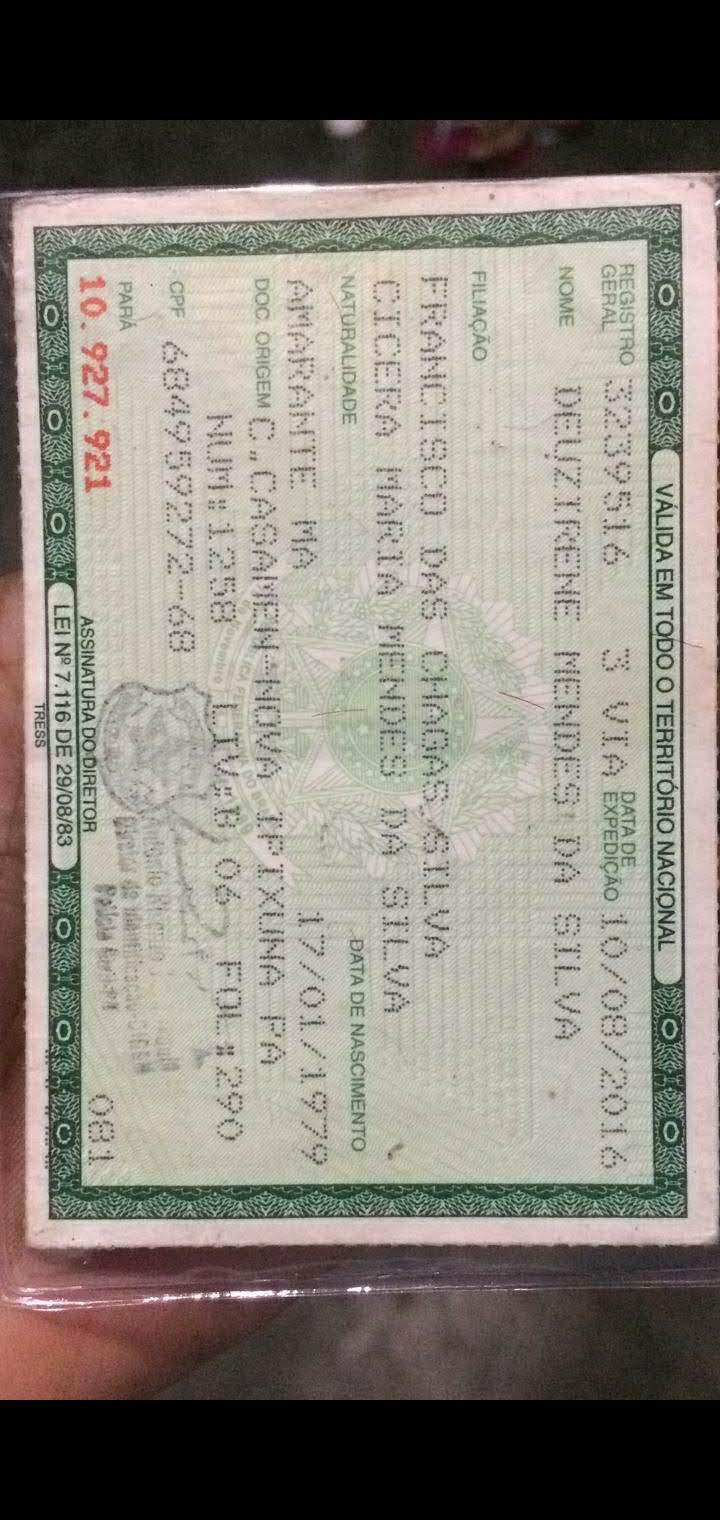 VÁLIDA EM TODO O TERRITÓRIO NACIONAL
REGISTRO GERAL 3239516 3 VIA DATA DE EXPEDIÇÃO 10/08/2016
NOME DEUZIRENE MENDES DA SILVA
FILIAÇÃO
FRANCISCO DAS CHAGAS SILVA
CICERA MARIA MENDES DA SILVA
NATURALIDADE DATA DE NASCIMENTO
AMARANTE MA 17/01/1979
DOC ORIGEM C.CASAMEN-NOVA IPIXUNA PA
NUM:1258 LIV:B 06 FOL:290
CPF 684959272-68
PARÁ
10.927.921 081
ASSINATURA DO DIRETOR
LEI Nº 7.116 DE 29/08/83
TRESS